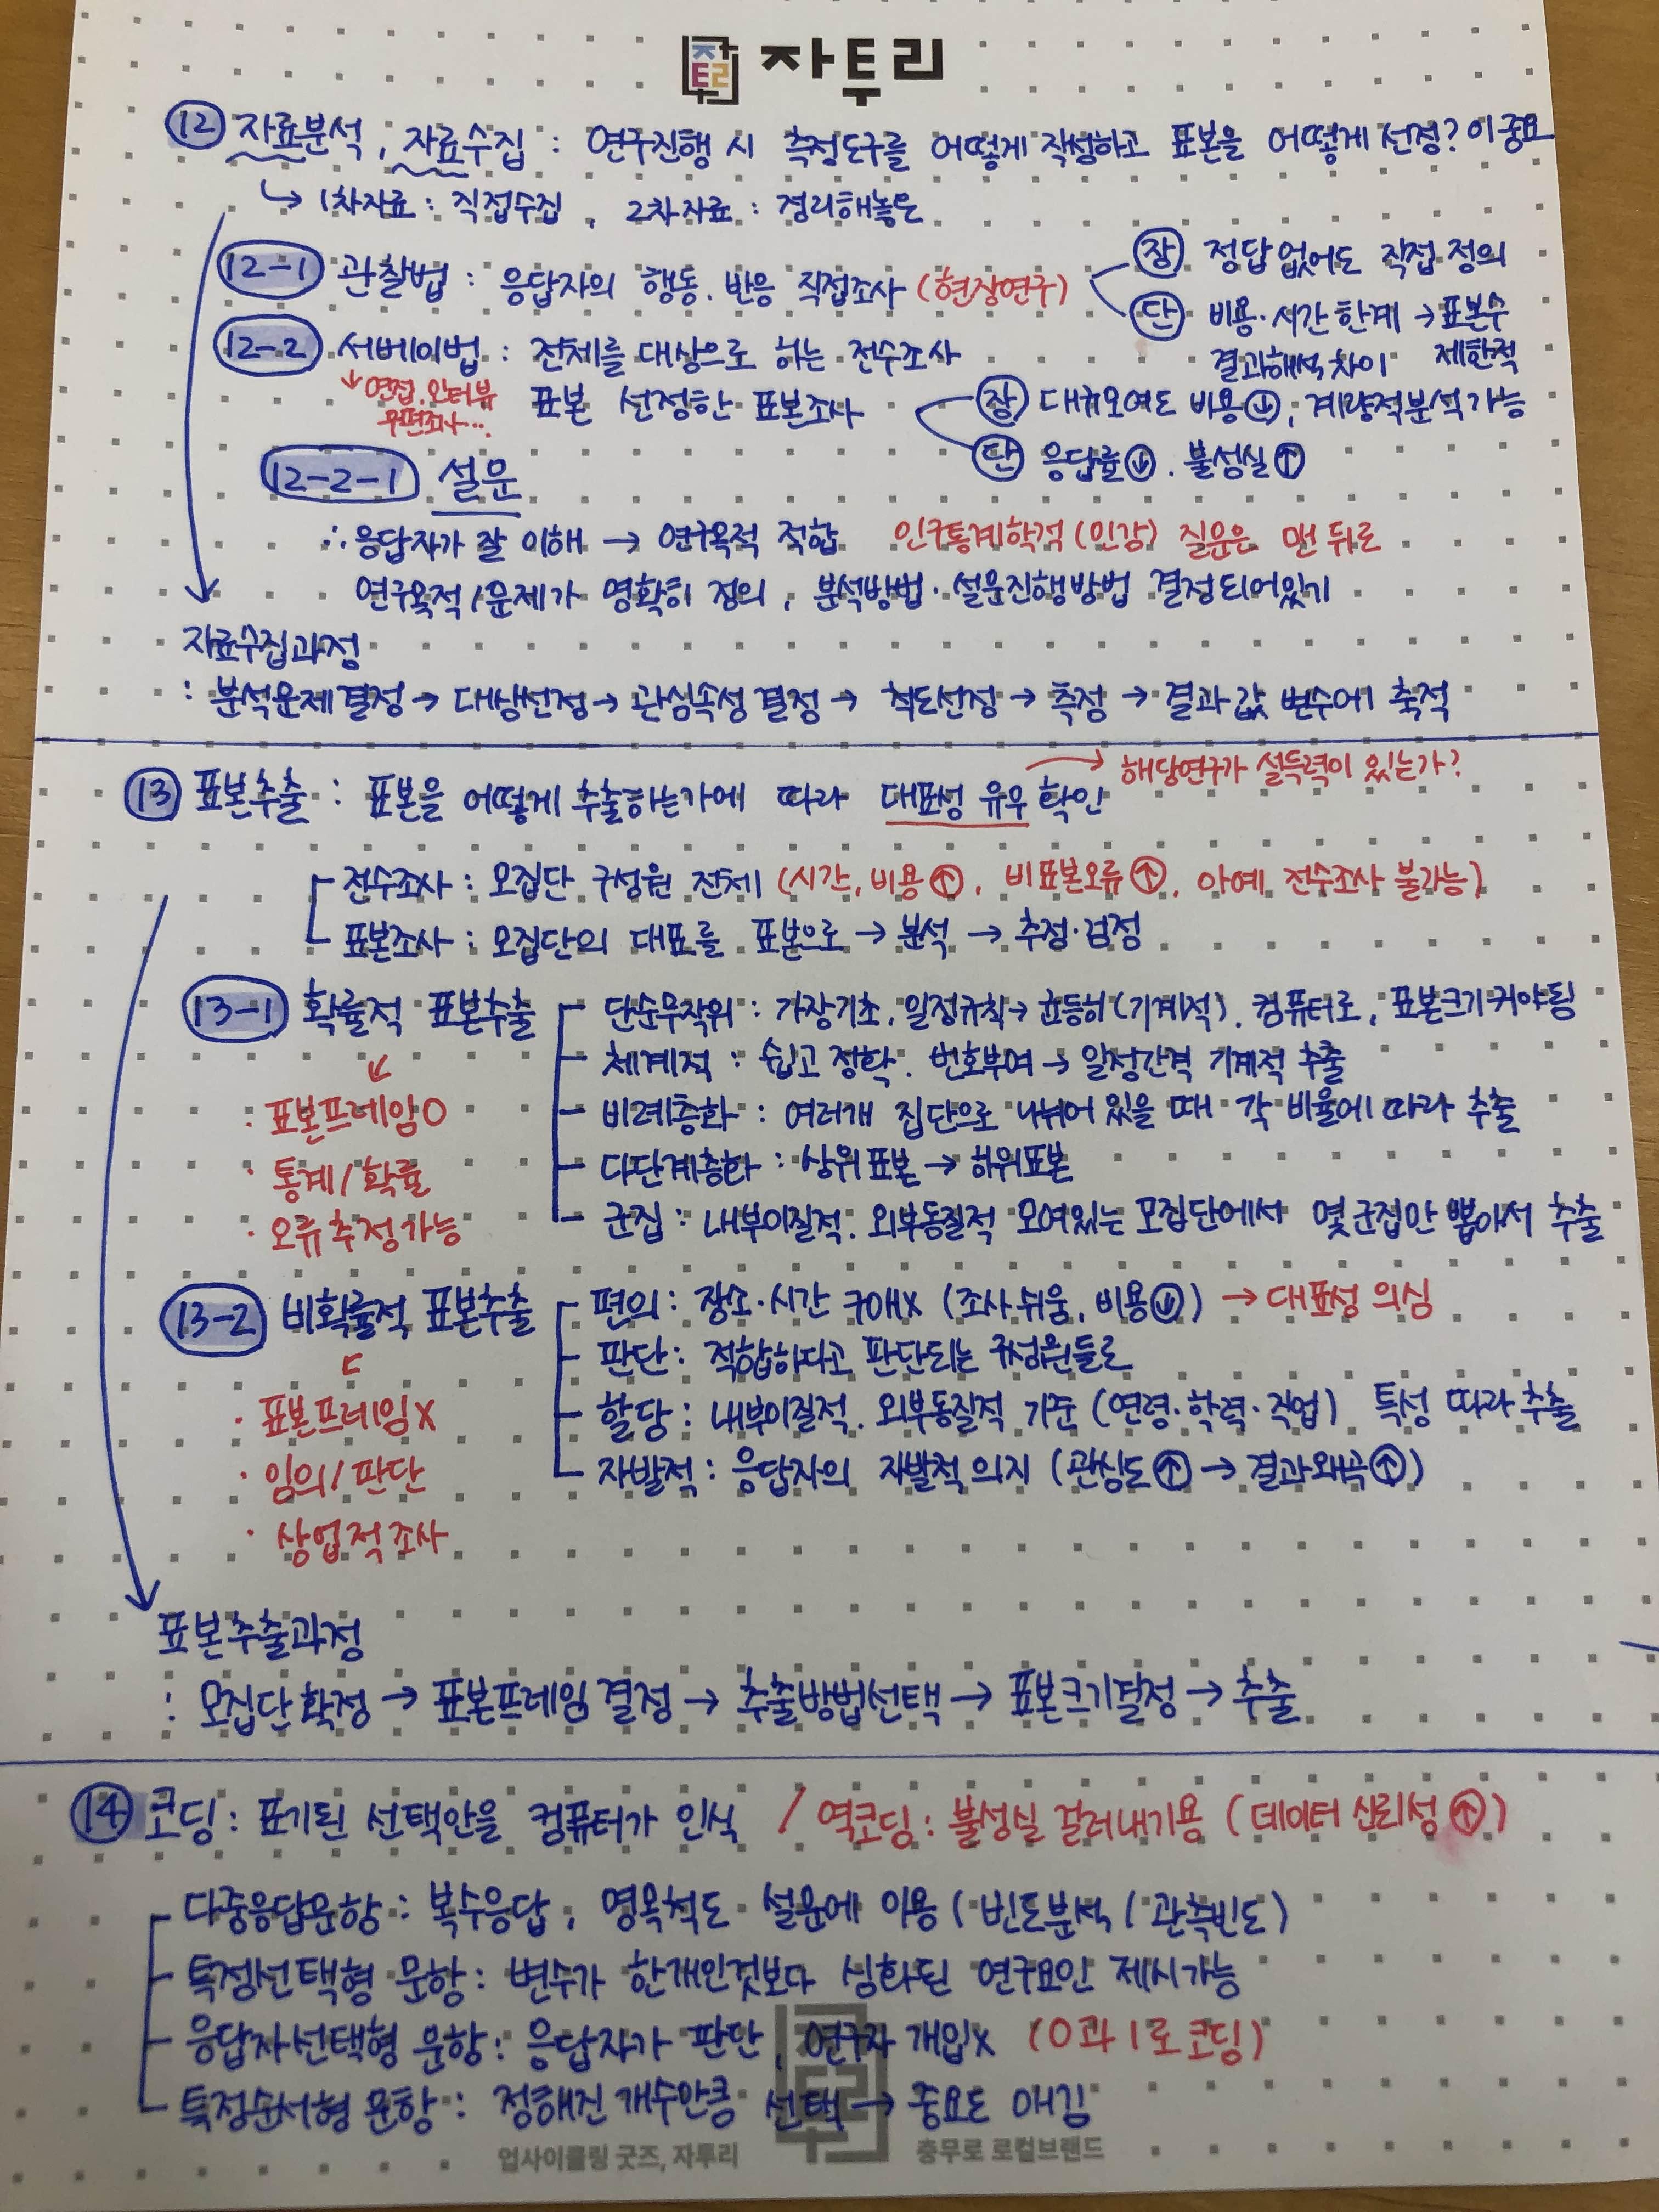 자투리
⑫ 자료분석, 자료수집 : 연구진행 시 측정도구를 어떻게 작성하고 표본을 어떻게 선정? 이 중요
↳ 1차자료 : 직접수집, 2차자료 : 정리해놓은
12-1 관찰법 : 응답자의 행동·반응 직접조사 (현장연구)
장 정답 없어도 직접 정의
단 비용·시간 한계 → 표본수 제한적
결과해석 차이
12-2 서베이법 : 전체를 대상으로 하는 전수조사
표본 선정한 표본조사
↓ 면접, 인터뷰
우편조사...
장 대규모여도 비용↓, 계량적분석 가능
단 응답률↓. 불성실↑
12-2-1 설문
∴ 응답자가 잘 이해 → 연구목적 적합 인구통계학적 (인강) 질문은 맨 뒤로
연구목적/문제가 명확히 정의, 분석방법·설문진행방법 결정되어있기
자료수집과정
: 분석문제결정 → 대상선정 → 관심속성 결정 → 척도선정 → 측정 → 결과값 변수에 축적
⑬ 표본추출 : 표본을 어떻게 추출하는가에 따라 대표성 유무 확인
→ 해당연구가 설득력이 있는가?
전수조사 : 모집단 구성원 전체 (시간, 비용↑, 비표본오류↑, 아예 전수조사 불가능)
표본조사 : 모집단의 대표를 표본으로 → 분석 → 추정·검정
13-1 확률적 표본추출
· 표본프레임O
· 통계/확률
· 오류 추정가능
단순무작위 : 가장기초, 일정규칙 → 균등히 (기계적). 컴퓨터로, 표본크기커야됨
체계적 : 쉽고 정확. 번호부여 → 일정간격 기계적 추출
비례층화 : 여러개 집단으로 나뉘어 있을 때 각 비율에 따라 추출
다단계층화 : 상위표본 → 하위표본
군집 : 내부이질적. 외부동질적 모여있는 모집단에서 몇 군집만 뽑아서 추출
13-2 비확률적 표본추출
· 표본프레임X
· 임의/판단
· 상업적조사
편의 : 장소·시간 구애X (조사 쉬움, 비용↓) → 대표성 의심
판단 : 적합하다고 판단되는 구성원들로
할당 : 내부이질적. 외부동질적 기준 (연령·학력·직업) 특성 따라 추출
자발적 : 응답자의 자발적 의지 (관심도↑ → 결과왜곡↑)
표본추출과정
: 모집단 확정 → 표본프레임 결정 → 추출방법선택 → 표본크기결정 → 추출
⑭ 코딩 : 표기된 선택안을 컴퓨터가 인식 / 역코딩 : 불성실 걸러내기용 (데이터 신뢰성↑)
다중응답문항 : 복수응답, 명목척도 설문에 이용 (빈도분석/관측빈도)
특정선택형 문항 : 변수가 한개인것보다 심화된 연구요인 제시가능
응답자선택형 문항 : 응답자가 판단, 연구자 개입X (0과 1로 코딩)
특정순서형 문항 : 정해진 개수만큼 선택 → 중요도 매김
업사이클링 굿즈, 자투리
충무로 로컬브랜드